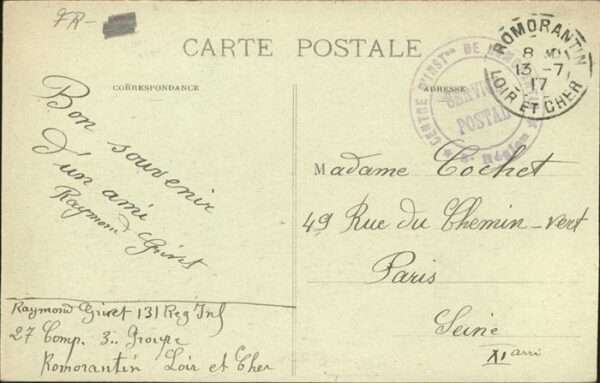 FR-
CARTE POSTALE
CORRESPONDANCE
ADRESSE
ROMORANTIN
8
13-7
17
LOIR ET CHER
CENTRE D'INSTon DE
SERVICE
POSTAL
Région
Bon souvenir
d'un ami
Raymond Givet
Raymond Givet 131 Reg Inf
27 Comp. 3.. Groupe
Romorantin Loir et Cher
Madame Cochet
49 Rue du Chemin-vert
Paris
Seine
XI arri